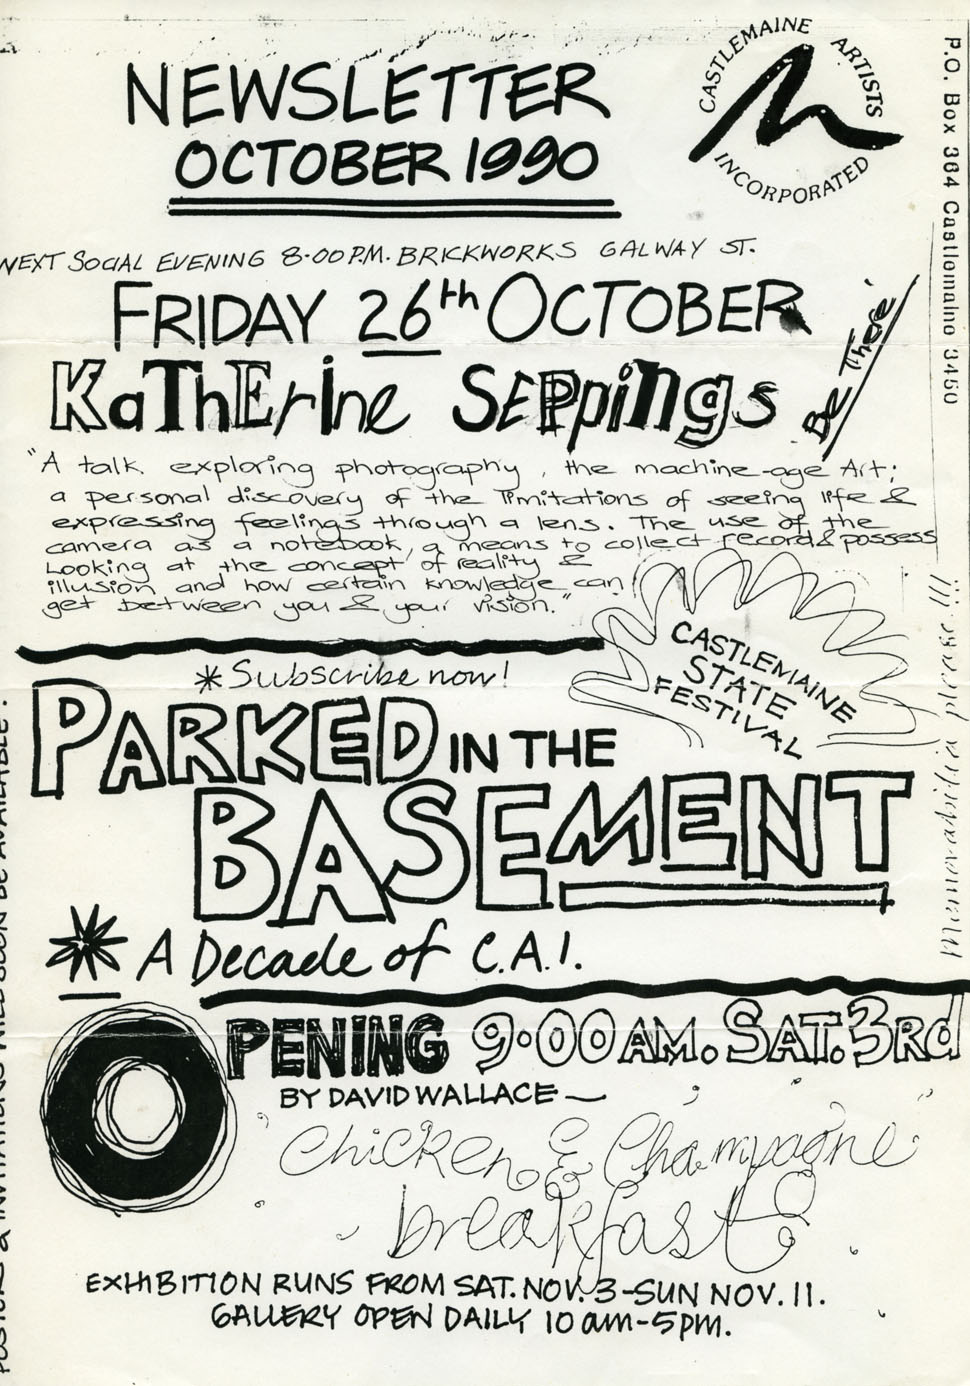 NEWSLETTER
OCTOBER 1990
CASTLEMAINE ARTISTS
INCORPORATED
P.O. Box 364 Castlemaine 3450
NEXT SOCIAL EVENING 8.00 P.M. BRICKWORKS GALWAY ST.
FRIDAY 26th OCTOBER
KaThErine SEPpings
Be There!
"A talk exploring photography, the machine-age Art;
a personal discovery of the limitations of seeing life &
expressing feelings through a lens. The use of the
camera as a notebook, a means to collect record & possess
Looking at the concept of reality &
illusion and how certain knowledge can
get between you & your vision."
CASTLEMAINE
STATE
FESTIVAL
* Subscribe now!
PARKED IN THE
BASEMENT
* A Decade of C.A.I.
OPENING 9.00 AM. SAT. 3Rd
BY DAVID WALLACE —
Chicken & Champagne
breakfast
EXHIBITION RUNS FROM SAT. NOV. 3 - SUN NOV. 11.
GALLERY OPEN DAILY 10 am - 5 pm.
POSTERS & INVITATIONS WILL SOON BE AVAILABLE.